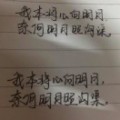 我本将心向明月,
奈何明月照沟渠。
我本将心向明月,
奈何明月照沟渠。